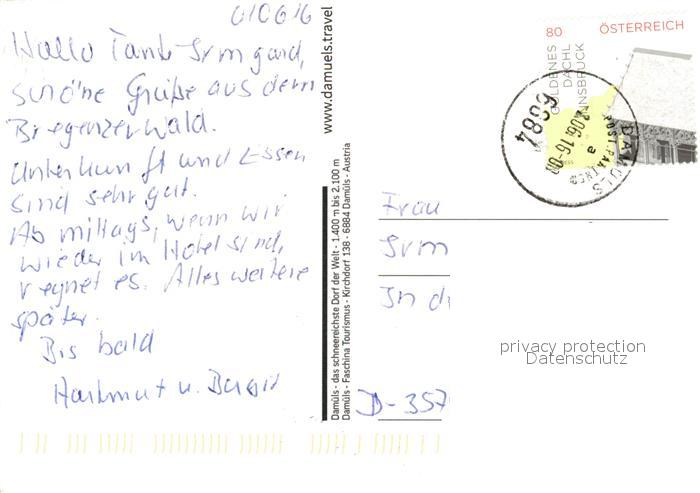 010616
Hallo Tante Irmgard,
schöne Grüße aus dem
Bregenzerwald.
Unterkunft und Essen
sind sehr gut.
Ab mittags, wenn wir
wieder im Hotel sind,
regnet es. Alles weitere
später.
Bis bald
Hartmut u.
www.damuels.travel
Damüls - das schneereichste Dorf der Welt - 1.400 m bis 2.100 m
Damüls - Faschina Tourismus - Kirchdorf 138 - 6884 Damüls - Austria
80 ÖSTERREICH
GOLDENES
DACHL
INNSBRUCK
6884
DAMÜLS
POST.PARTNER
a
Frau
Irm
In d
D-357
privacy protection
Datenschutz